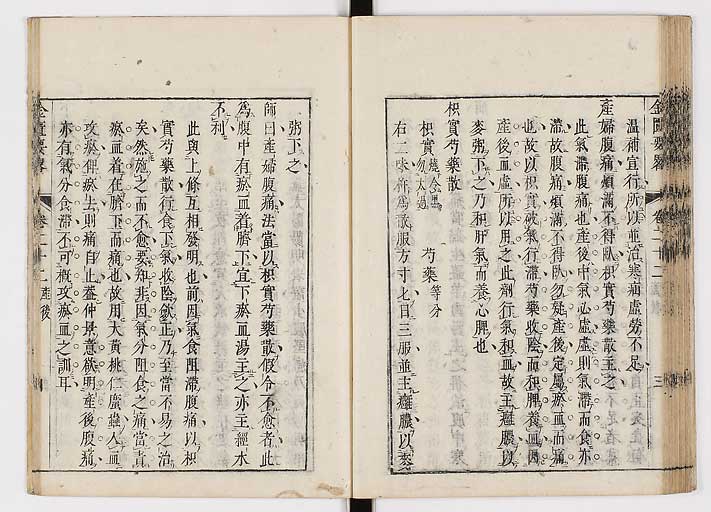 溫補宜行所以並治寒疝虛勞不足
產婦腹痛煩滿不得臥枳實芍藥散主之
此氣滯腹痛也產後中氣必虛虛則氣滯而食亦
滯故腹痛煩滿不得臥勿疑產後定屬瘀血而痛
也故以枳實破氣行滯芍藥收陰而和脾養血因
產後血虛所以用之此劑行氣和血故主癰膿以
麥粥下之乃和肝氣而養心脾也
枳實芍藥散
枳實 燒令黑勿太過 芍藥 等分
右二味杵為散服方寸匕日三服並主癰膿以麥
粥下之
師曰產婦腹痛法當以枳實芍藥散假令不愈者此
為腹中有瘀血着臍下宜下瘀血湯主之亦主經水
不利
此與上條互相發明也前因氣食阻滯腹痛以枳
實芍藥行食下氣收陰歛正乃至當不易之治
矣然施之而不愈要知非因氣分阻食之痛當責
瘀血着在臍下而痛也故用大黃桃仁䗪蟲入血
攻瘀俾瘀去則痛自止蓋仲景意欲明產後腹痛
亦有氣分食滯不可概攻瘀血之訓耳
金匱要畧 卷二十二 產後